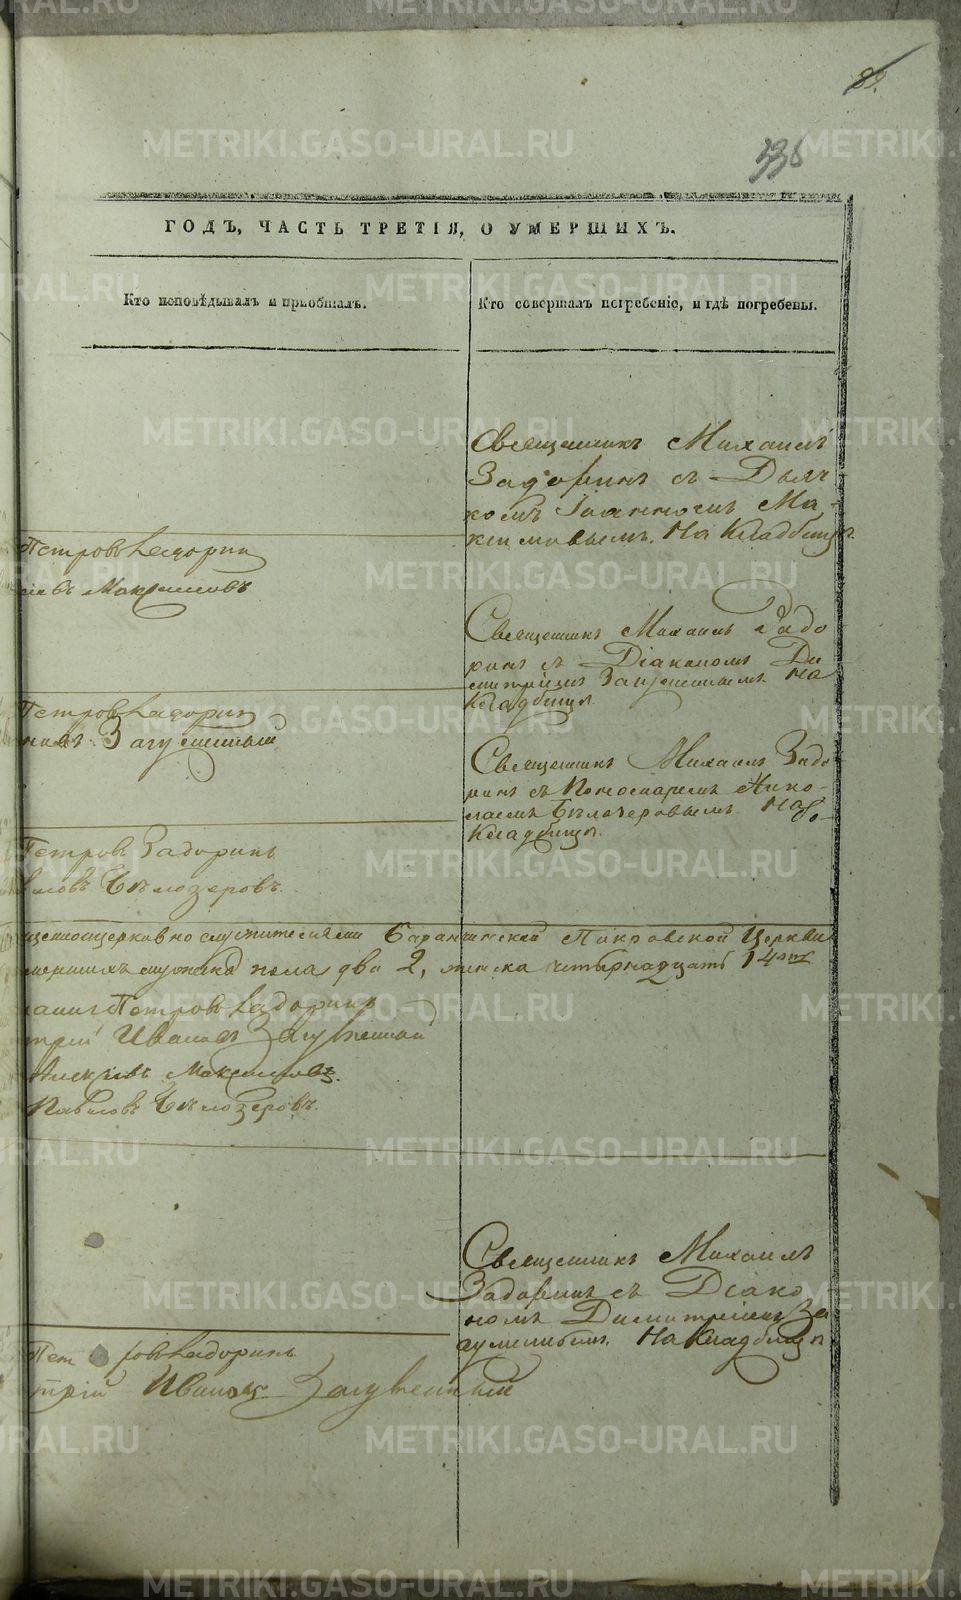 89.
336
ГОДЪ, ЧАСТЬ ТРЕТІЯ, О УМЕРШИХЪ.
Кто исповѣдывалъ и пріобщалъ.
Кто совершалъ погребеніе, и гдѣ погребены.
Священникъ Михаилъ
Задоринъ съ Дьяч-
комъ Іоанномъ Ма-
ксимовымъ. На Кладбищѣ
Петровъ Задоринъ
Максимовъ
Священникъ Михаилъ Задо
ринъ съ Діакономъ Ди
митріемъ Загуменнымъ. На
Кладбищѣ
Петровъ Задоринъ
Загуменный
Священникъ Михаилъ Задо
ринъ съ Пономаремъ Нико-
лаемъ Бѣлозеровымъ. На
Кладбищѣ.
Петровъ Задоринъ
Бѣлозеровъ.
Баранчинской Покровской Церкви
мужска пола два 2, женска четырнадцать 14
Петровъ Задоринъ
трій Ивановъ Загуменный
Алексѣевъ Максимовъ.
Павловъ Бѣлозеровъ.
Священникъ Михаилъ
Задоринъ съ Діако
номъ Димитріемъ За
гуменнымъ. На Кладбищѣ
Петровъ Задоринъ
трій Ивановъ Загуменный
METRIKI.GASO-URAL.RU